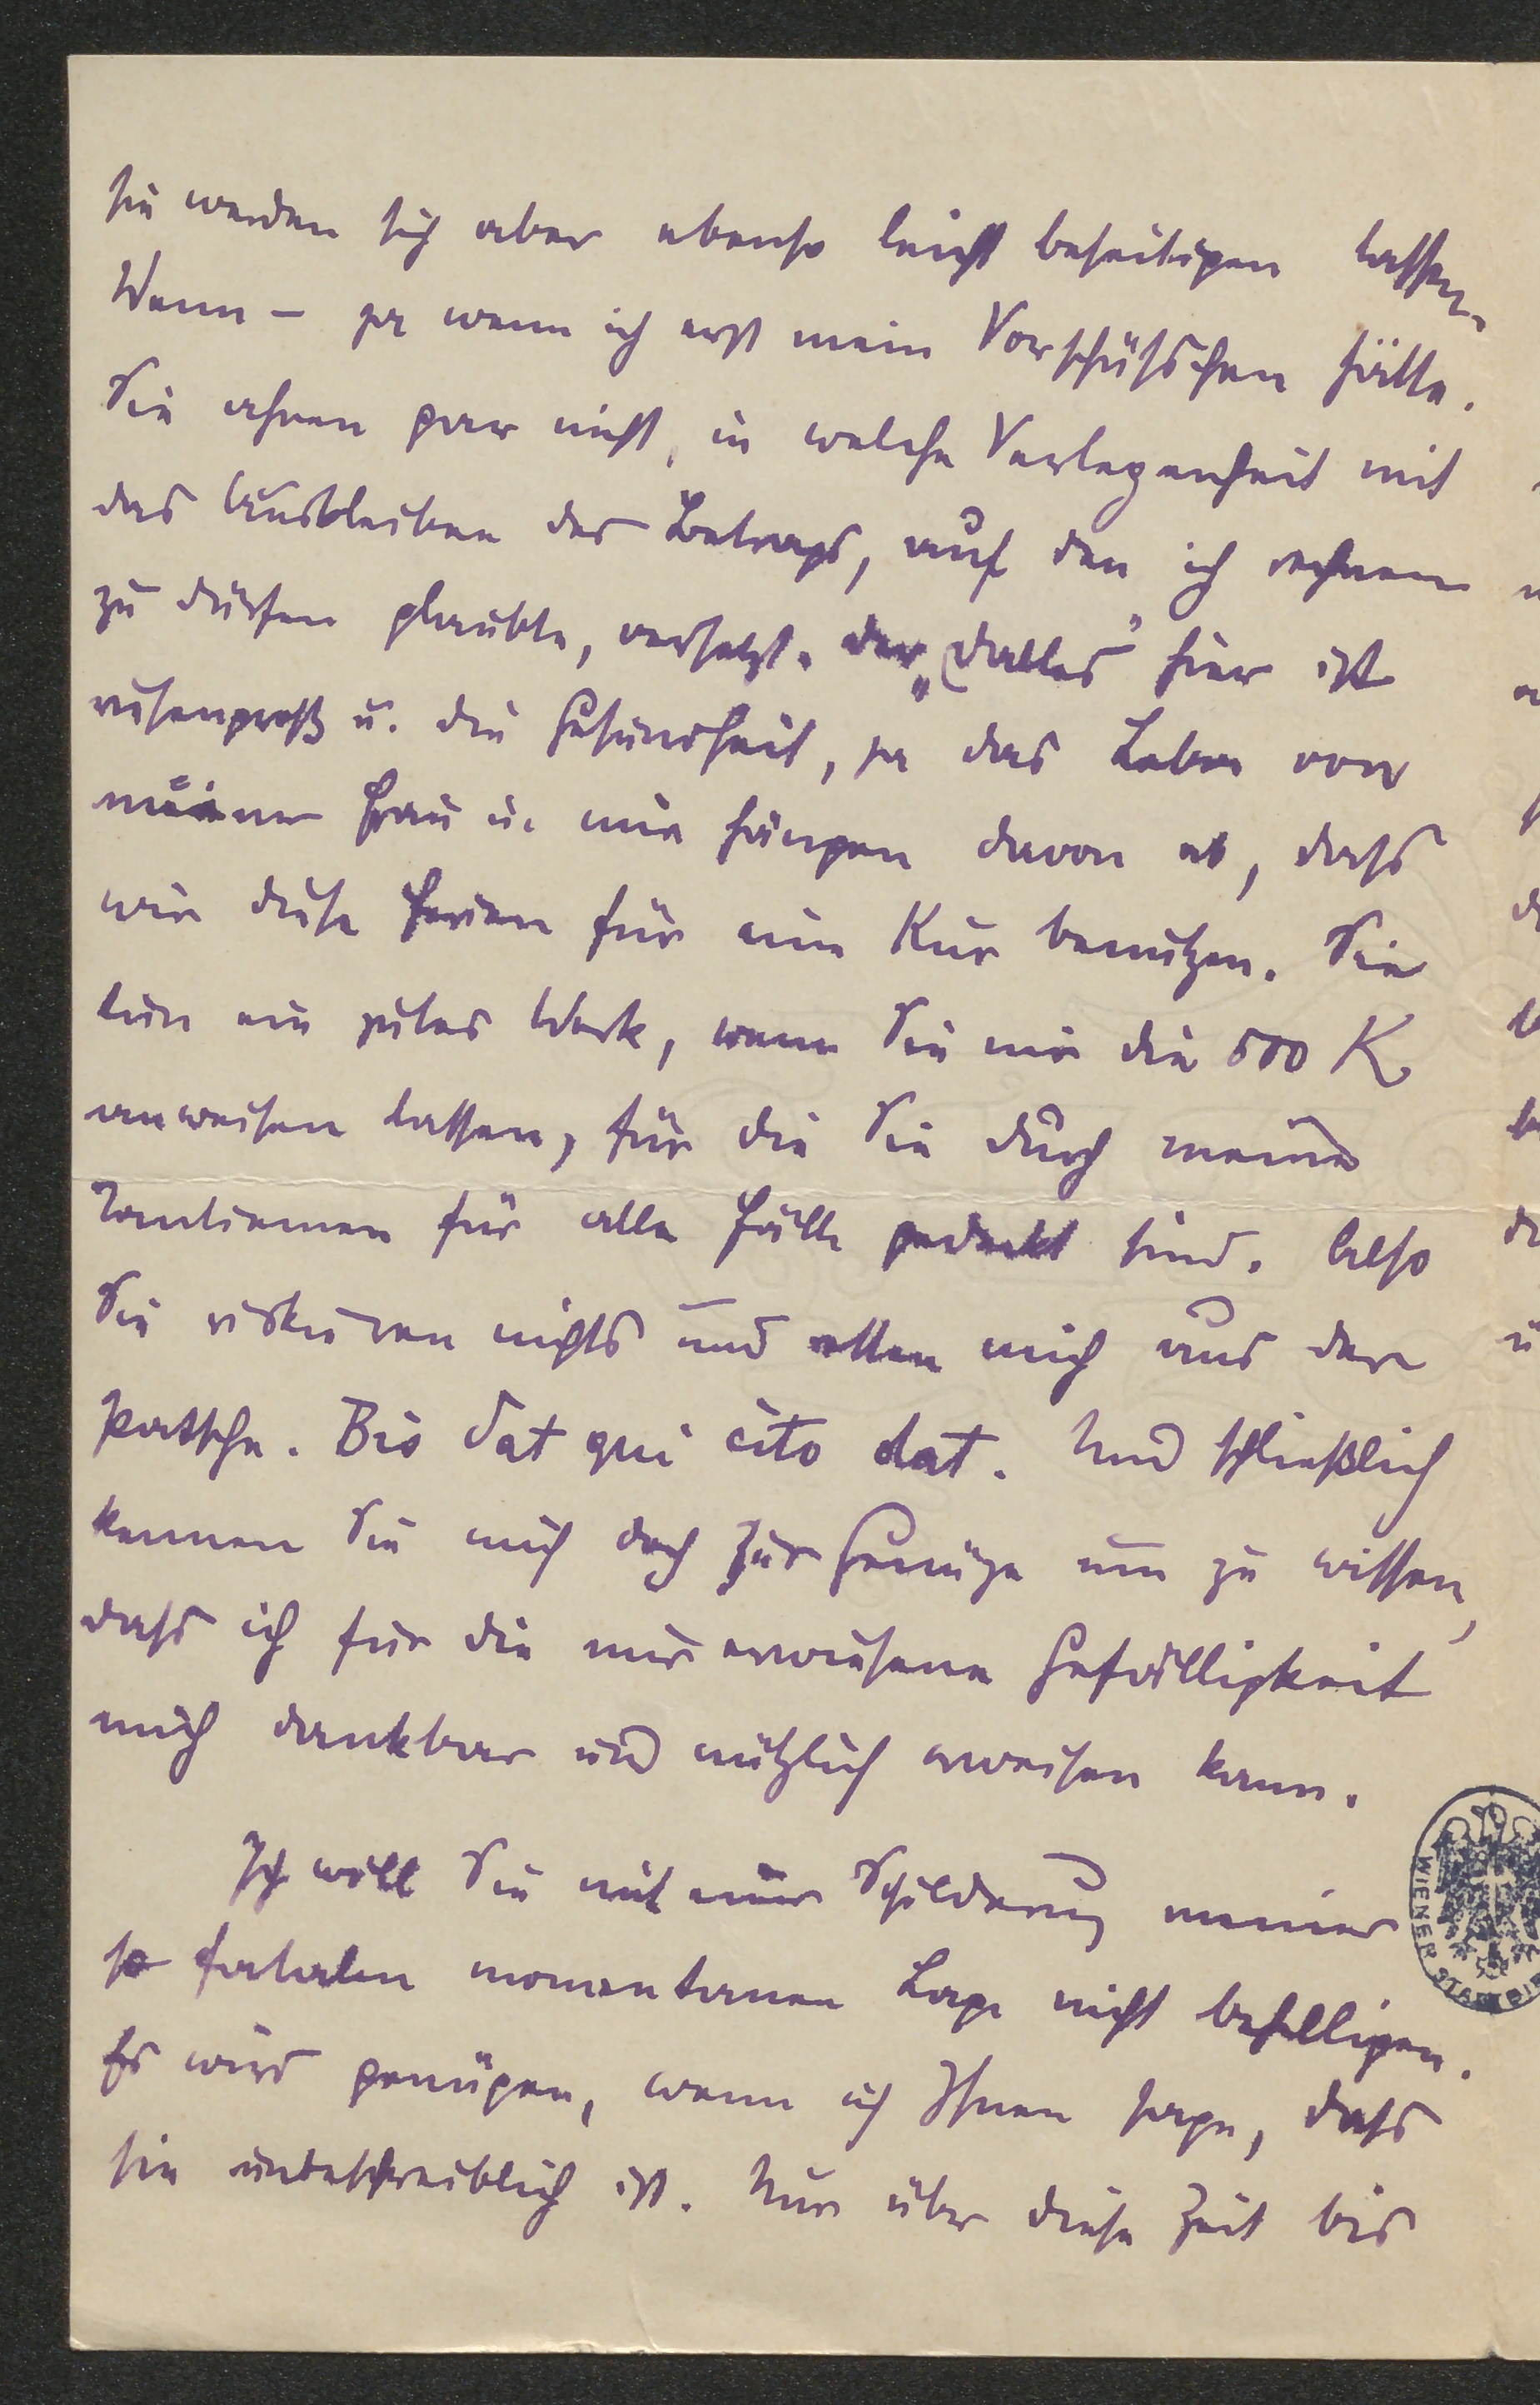 sie werden sich aber ebenso leicht beseitigen lassen.
Wenn – ja wenn ich erst mein Vorschüsschen hätte.
Sie ahnen gar nicht, in welche Verlegenheit mich
das Ausbleiben des Betrags, auf den ich rechnen
zu dürfen glaubte, versetzt. Der „Dalles" hier ist
riesengroß u. die Gesundheit, ja das Leben von
meiner Frau u. mir hängen davon ab, dass
wir diese Ferien für eine Kur benutzen. Sie
tun ein gutes Werk, wenn Sie mir die 500 K
anweisen lassen, für die Sie durch meine
Tantiemen für alle Fälle gedeckt sind. Also
Sie riskieren nichts und retten mich aus der
Patsche. Bis dat qui cito dat. Und schließlich
kennen Sie mich doch zur Genüge um zu wissen,
dass ich für die mir erwiesene Gefälligkeit
mich dankbar und nützlich erweisen kann.
Ich will Sie mit einer Schilderung meiner
so fatalen momentanen Lage nicht behelligen.
Es wird genügen, wenn ich Ihnen sage, dass
sie unbeschreiblich ist. Nur über diese Zeit bis
WIENER STADTBI